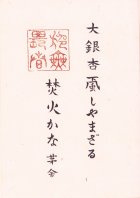 大銀杏風しやまざる
焚火かな 茅舎